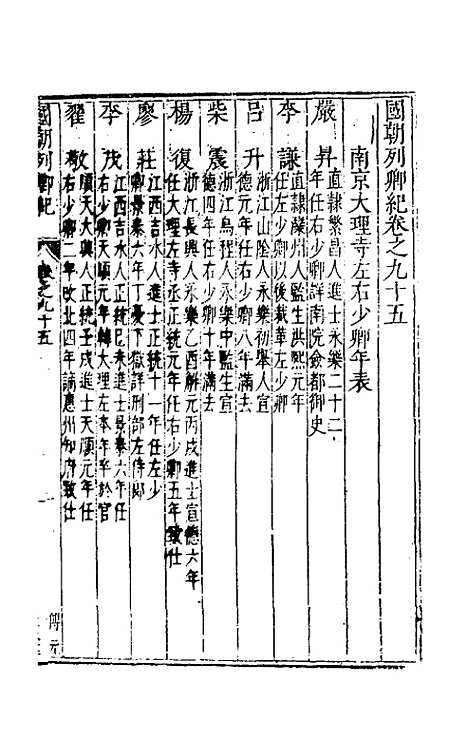 國朝列卿紀卷之九十五
南京大理寺左右少卿年表
嚴昇 直隸繁昌人進士永樂二十二
年任右少卿詳南院僉都御史
李謙 直隸灤州人監生洪熙元年
任左少卿以後裁革左少卿
呂升 浙江山陰人永樂初舉人宣
德元年任右少卿八年滿去
柴震 浙江烏程人永樂中監生宣
德四年任右少卿十年滿去
楊復 浙江長興人永樂乙酉解元丙戌進士宣德六年
任大理左寺丞正統元年任右少卿五年致仕
廖莊 江西吉水人進士正統十一年任左少
卿景泰六年丁憂下獄詳刑部左侍郎
李茂 江西吉水人正統己未進士景泰六年任
右少卿天順元年轉大理左本年卒於官
翟敬 順天大興人正統壬戌進士天順元年任
右少卿二年改北四年謫惠州知府致仕
國朝列卿紀 卷之九十五
傅元